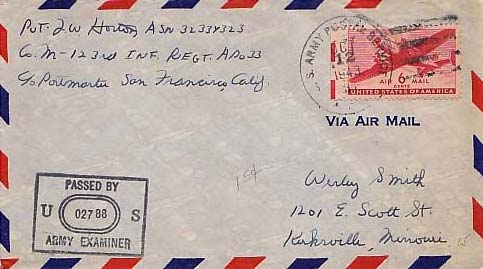 Pvt. J.W. Horton ASN 32334323
Co. M-123rd INF. REGT. APO 33
C/o Postmaster San Francisco Calif.
U.S. ARMY POSTAL
12
194
6
CENTS
AIR MAIL
UNITED STATES OF AMERICA
VIA AIR MAIL
15¢
PASSED BY
U 02788 S
ARMY EXAMINER
Wesley Smith
1201 E. Scott St.
Kirksville, Missouri
15